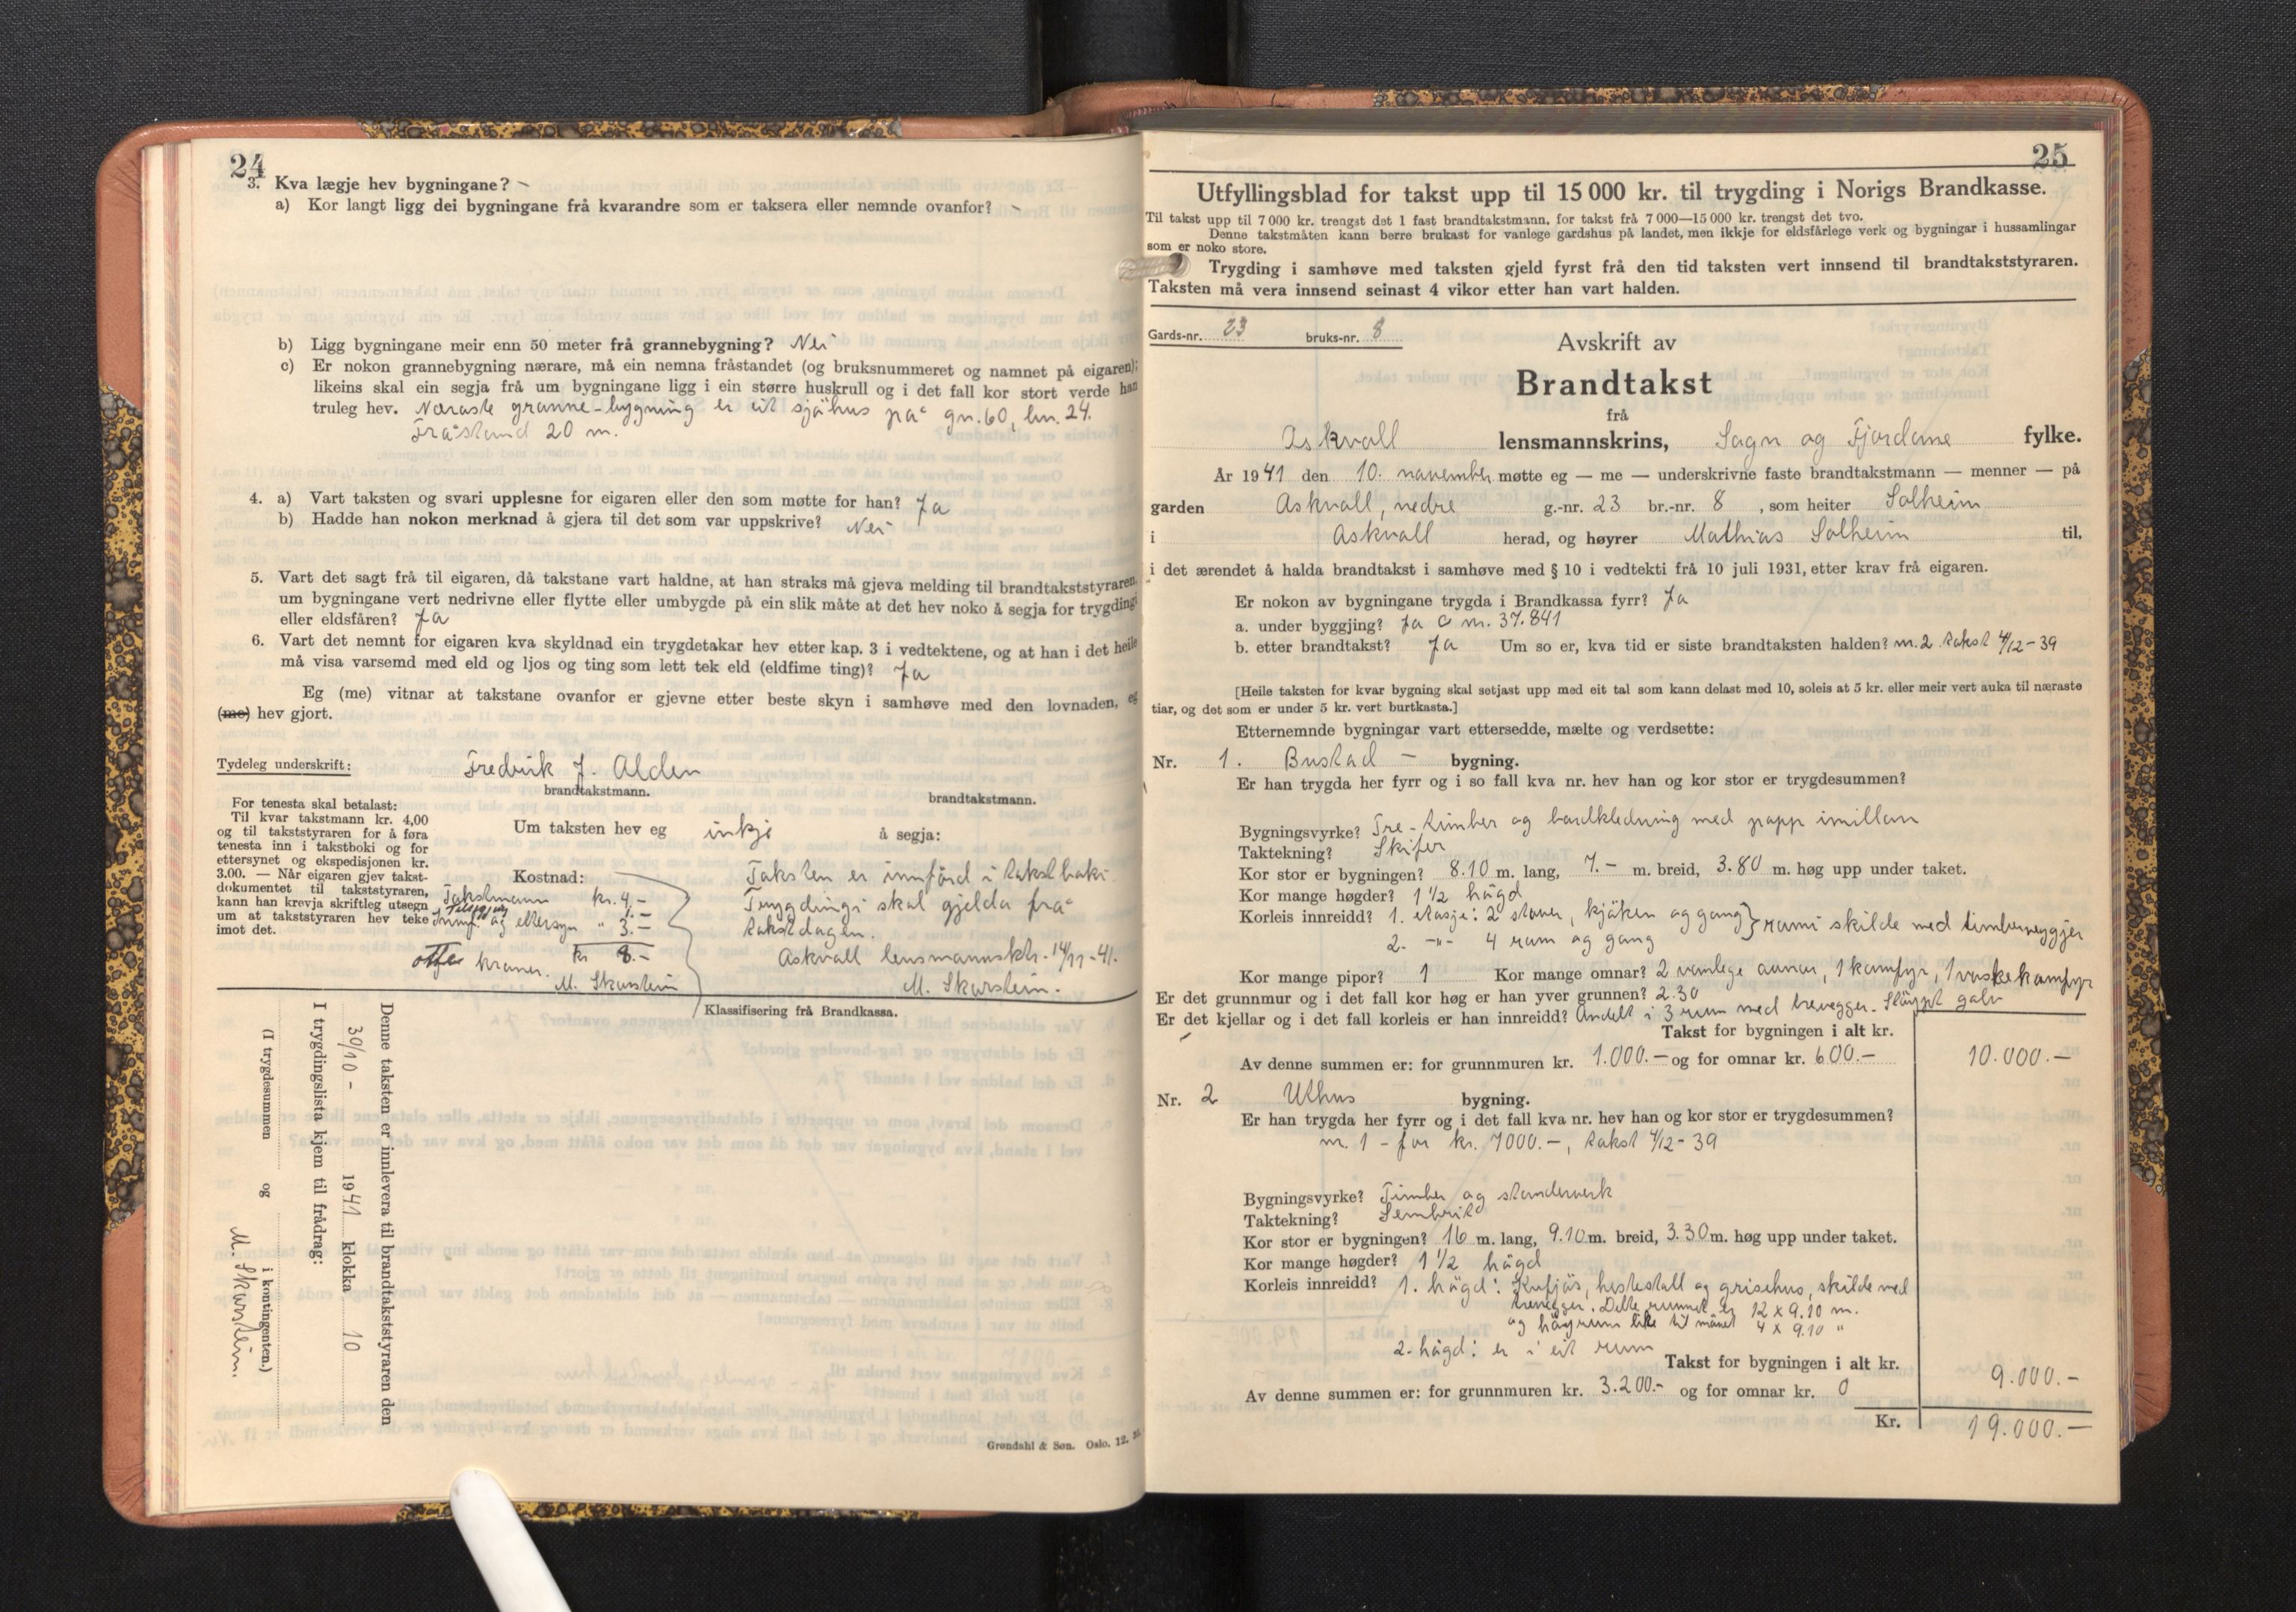 24
3. Kva lægje hev bygningane? –
a) Kor langt ligg dei bygningane frå kvarandre som er taksera eller nemnde ovanfor? –
b) Ligg bygningane meir enn 50 meter frå grannebygning? Nei
c) Er nokon grannebygning nærare, må ein nemna fråstandet (og bruksnummeret og namnet på eigaren);
likeins skal ein segja frå um bygningane ligg i ein større huskrull og i det fall kor stort verde han
truleg hev. Næraste granne-bygning er eit sjøhus på gn. 60, bn. 24.
Fråstand 20 m.
4. a) Vart taksten og svari upplesne for eigaren eller den som møtte for han? Ja
b) Hadde han nokon merknad å gjera til det som var uppskrive? Nei
5. Vart det sagt frå til eigaren, då takstane vart haldne, at han straks må gjeva melding til brandtakststyraren,
um bygningane vert nedrivne eller flytte eller umbygde på ein slik måte at det hev noko å segja for trygdingi
eller eldsfåren? Ja
6. Vart det nemnt for eigaren kva skyldnad ein trygdetakar hev etter kap. 3 i vedtektene, og at han i det heile
må visa varsemd med eld og ljos og ting som lett tek eld (eldfime ting)? Ja
Eg (me) vitnar at takstane ovanfor er gjevne etter beste skyn i samhøve med den lovnaden, eg
(me) hev gjort.
Tydeleg underskrift: Fredrik J. Alden
brandtakstmann. brandtakstmann.
For tenesta skal betalast:
Til kvar takstmann kr. 4,00
og til takststyraren for å føra
tenesta inn i takstboki og for
ettersynet og ekspedisjonen kr.
3.00. — Når eigaren gjev takst-
dokumentet til takststyraren,
kann han krevja skriftleg utsegn
um at takststyraren hev teke
imot det.
Um taksten hev eg inkje å segja:
Kostnad:
Takstmann kr. 4,-
1.-
og ettersyn " 3.-
kr 8.-
otte kroner.
M. Skarstein
Taksten er innførd i takstboki.
Trygdingi skal gjelda frå
takstdagen.
Askvoll lensmannsktr. 14/11-41.
M. Skarstein.
Klassifisering frå Brandkassa.
Denne taksten er innlevera til brandtakststyraren den
30/10- 1941 klokka 10
I trygdingslista kjem til frådrag:
(I trygdesummen og i kontingenten.)
M. Skarstein.
Grøndahl & Søn. Oslo. 12.
25
Utfyllingsblad for takst upp til 15 000 kr. til trygding i Norigs Brandkasse.
Til takst upp til 7 000 kr. trengst det 1 fast brandtakstmann, for takst frå 7 000—15 000 kr. trengst det tvo.
Denne takstmåten kann berre brukast for vanlege gardshus på landet, men ikkje for eldsfårlege verk og bygningar i hussamlingar
som er noko store.
Trygding i samhøve med taksten gjeld fyrst frå den tid taksten vert innsend til brandtakststyraren.
Taksten må vera innsend seinast 4 vikor etter han vart halden.
Gards-nr. 23 bruks-nr. 8
Avskrift av
Brandtakst
frå
Askvoll lensmannskrins, Sogn og Fjordane fylke.
År 1941 den 10. november møtte eg — me — underskrivne faste brandtakstmann — menner — på
garden Askvoll, nedre g.-nr. 23 br.-nr. 8 , som heiter Solheim
i Askvoll herad, og høyrer Mathias Solheim til,
i det ærendet å halda brandtakst i samhøve med § 10 i vedtekti frå 10 juli 1931, etter krav frå eigaren.
Er nokon av bygningane trygda i Brandkassa fyrr? Ja
a. under byggjing? Ja C nr. 37.841
b. etter brandtakst? Ja Um so er, kva tid er siste brandtaksten halden? nr. 2 takst 4/12-39
[Heile taksten for kvar bygning skal setjast upp med eit tal som kann delast med 10, soleis at 5 kr. eller meir vert auka til næraste
tiar, og det som er under 5 kr. vert burtkasta.]
Etternemnde bygningar vart ettersedde, mælte og verdsette:
Nr. 1. Bustad – bygning.
Er han trygda her fyrr og i so fall kva nr. hev han og kor stor er trygdesummen?
Bygningsvyrke? Tre-timber og bordkledning med papp imillom
Taktekning? Skifer
Kor stor er bygningen? 8.10 m. lang, 7.- m. breid, 3.80 m. høg upp under taket.
Kor mange høgder? 1 1/2 høgd
Korleis innreidd? 1. etasje: 2 stover, kjøken og gang } romi skilde med timberveggjer
2. -"- 4 rom og gang
Kor mange pipor? 1 Kor mange omnar? 2 vanlege omnar, 1 komfyr, 1 vaskekomfyr
Er det grunnmur og i det fall kor høg er han yver grunnen? 2.30
Er det kjellar og i det fall korleis er han innreidd? Andelt i 3 rum med trevegger. Støypt golv
Takst for bygningen i alt kr.
Av denne summen er: for grunnmuren kr. 1.000.- og for omnar kr. 600.- 10.000.-
Nr. 2 Uthus bygning.
Er han trygda her fyrr og i det fall kva nr. hev han og kor stor er trygdesummen?
nr. 1 - for kr. 7000.-, takst 4/12-39
Bygningsvyrke? Timber og standerverk
Taktekning? Sembrit
Kor stor er bygningen? 16 m. lang, 9.10 m. breid, 3.30 m. høg upp under taket.
Kor mange høgder? 1 1/2 høgd
Korleis innreidd? 1. høgd: Kufjøs, hestestall og grisehus, skilde med
trevegger. Dette rummet er 12 x 9.10 m.
og høyrum like til mønet 4 x 9.10 "
2. høgd: er i eit rum
Takst for bygningen i alt kr.
Av denne summen er: for grunnmuren kr. 3.200.- og for omnar kr. 0 9.000.-
Kr. 19.000.-